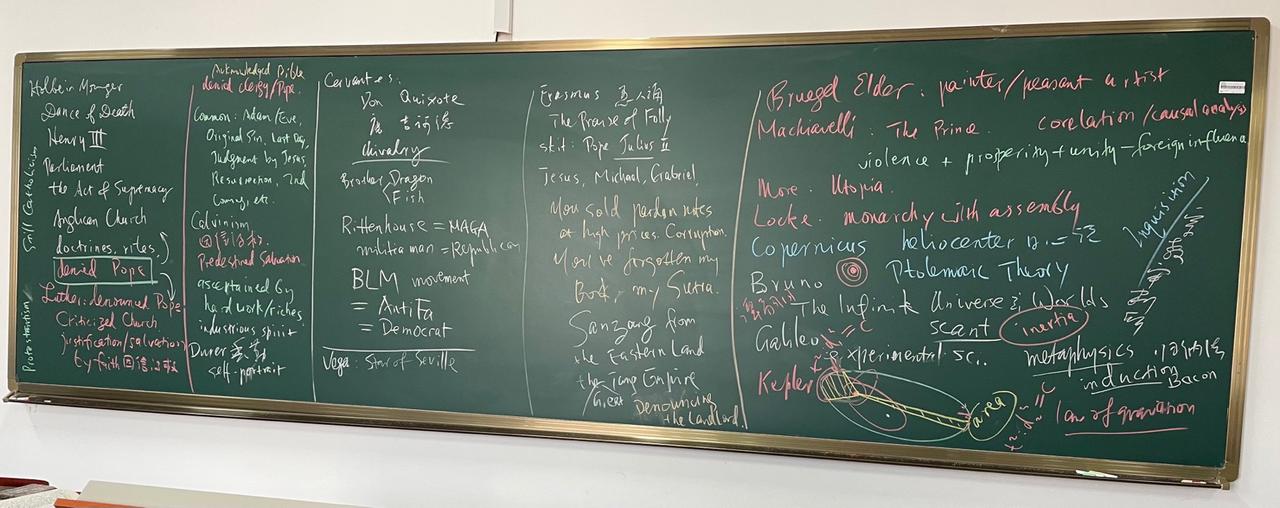 Dance of Death
Henry III
Parliament
the Act of Supremacy
Anglican Church
doctrines, rites,
denied Pope
Luther: denounced Pope
Criticized Church
justification/salvation
by faith 因信
Protestantism
Acknowledged Bible
denied clergy/Pope.
Common: Adam/Eve,
Original Sin, Last Day,
Judgment by Jesus
Resurrection, 2nd
Coming, etc.
Calvinism
Predestined Salvation
ascertained by
hard work/riches
industrious spirit
Durer
self-portrait
Cervantes:
Don Quixote
chivalry
Brother Dragon
Fish
Rittenhouse = MAGA
militia man = Republican
BLM movement
= Antifa
= Democrat
Vega: Star of Seville
Erasmus 愚人颂
The Praise of Folly
skit: Pope Julius II
Jesus, Michael, Gabriel
You sold pardon notes
at high prices. Corruption.
You've forgotten my
Book, my Sutra.
Sanzang from
the Eastern Land
the Tang Empire
Great Denouncing
the Landlord.
Bruegel Elder: painter/peasant artist
Machiavelli: The Prince. corelation/causal analysis
violence + prosperity + unity - foreign influence
More: Utopia.
Locke: monarchy with assembly
Copernicus heliocenter
Bruno Ptolemaic Theory
The Infinite Universe & Worlds
Galileo scant inertia
experimental sc..
metaphysics
induction Bacon
Kepler
area
= C
law of gravitation
Inquisition